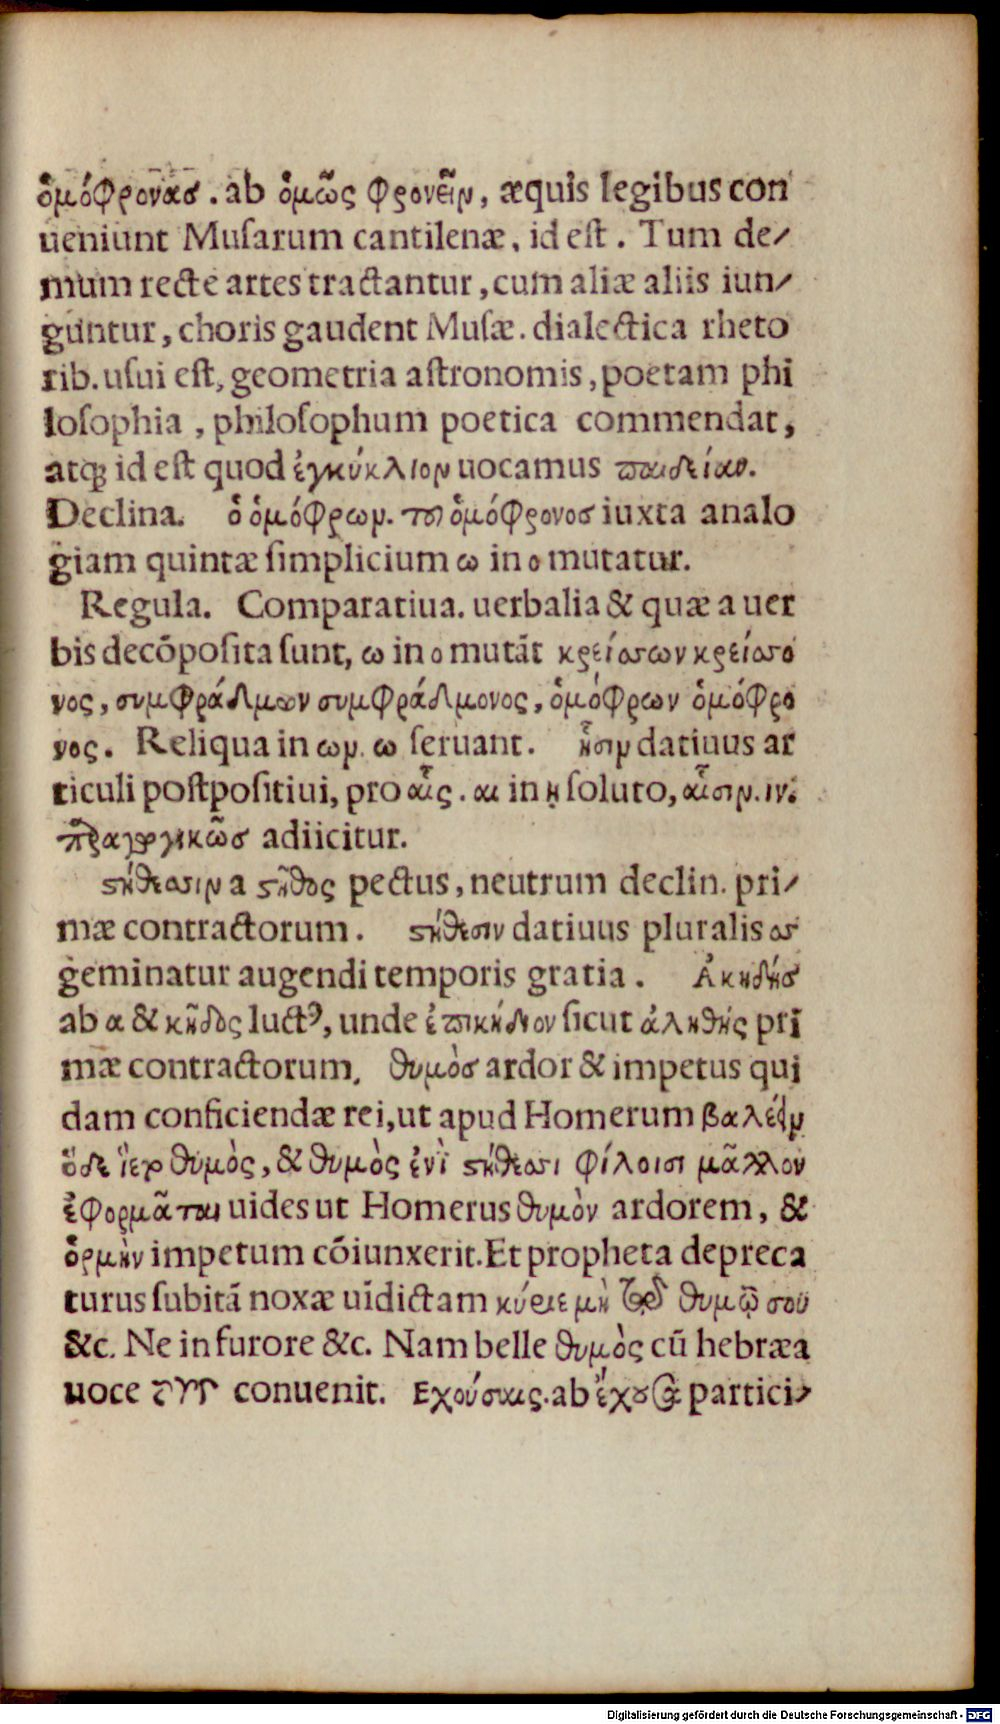 ὁμόφρονας. ab ὁμῶς φρονεῖν, æquis legibus con
ueniunt Musarum cantilenæ, id est. Tum de⸗
mum recte artes tractantur, cum aliæ aliis iun⸗
guntur, choris gaudent Musæ. dialectica rheto
rib. usui est, geometria astronomis, poetam phi
losophia, philosophum poetica commendat,
atq; id est quod ἐγκύκλιον uocamus παιδείαν.
Declina. ὁ ὁμόφρων. τοῦ ὁμόφρονος iuxta analo
giam quintæ simplicium ω in ο mutatur.
Regula. Comparatiua. uerbalia & quæ a uer
bis decōposita sunt, ω in ο mutāt κρείσσων κρείσσο
νος, συμφράδμων συμφράδμονος, ὁμόφρων ὁμόφρο
νος. Reliqua in ων. ω seruant. ᾗσιν datiuus ar
ticuli postpositiui, pro αἷς. αι in ῃ soluto, αἷσιν. ιν.
παραγωγικῶς adiicitur.
στήθεσσιν a στῆθος pectus, neutrum declin. pri⸗
mæ contractorum. στήθεσιν datiuus pluralis σσ
geminatur augendi temporis gratia. Ἀκηδής
ab α & κῆδος luctꝰ, unde ἐπικήδιον sicut ἀληθής pri
mæ contractorum. θυμὸς ardor & impetus qui
dam conficiendæ rei, ut apud Homerum βαλέειν
δέ ἵετο θυμὸς, & θυμὸς ἐνὶ στήθεσσι φίλοισι μᾶλλον
ἐφορμᾶται uides ut Homerus θυμὸν ardorem, &
ὁρμὴν impetum cōiunxerit. Et propheta depreca
turus subitā noxæ uīdictam κύριε μὴ τῷ θυμῷ σοῦ
&c. Ne in furore &c. Nam belle θυμὸς cū hebræa
uoce conuenit. Εχούσαις. ab ἔχουσα partici⸗
Digitalisierung gefördert durch die Deutsche Forschungsgemeinschaft - DFG